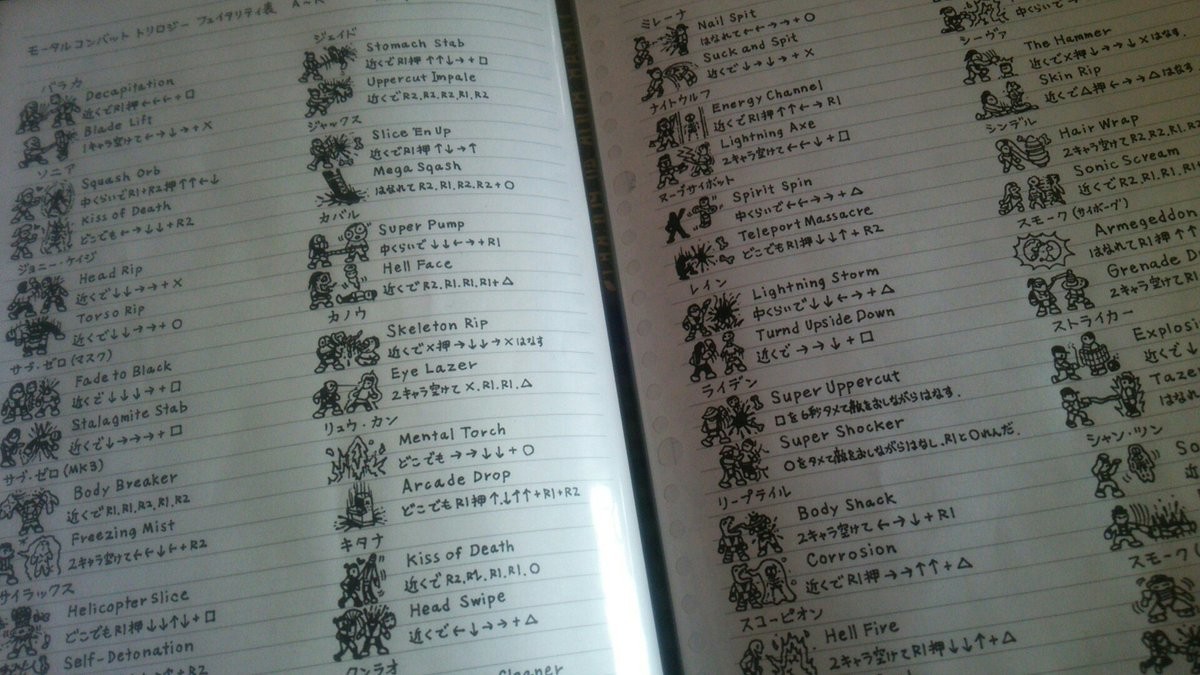 モータルコンバット トリロジー フェイタリティ表 A~K
バラカ
Decapitation
近くでR1押←←←+□
Blade Lift
1キャラ空けて←→↓→+×
ソニア
Squash Orb
中くらいでR1+R2押↑↑←↓
Kiss of Death
どこでも←→↓↓+R2
ジョニー・ケイジ
Head Rip
近くで↓↓→→+×
Torso Rip
近くで↓↓→→+○
サブ・ゼロ(マスク)
Fade to Black
近くで↓↓↓→+□
Stalagmite Stab
近くで↓→→→+□
サブ・ゼロ(MK3)
Body Breaker
近くでR1.R1.R2.R1.R2
Freezing Mist
2キャラ空けて←←↓←+R2
サイラックス
Helicopter Slice
どこでもR1押↓↓↑↓+□
Self-Detonation
ジェイド
Stomach Stab
近くでR1押↑↑↓→+□
Uppercut Impale
近くでR2.R2.R2.R1.R2
ジャックス
Slice 'En Up
近くでR1押↑↓→↑
Mega Sqash
はなれてR2.R1.R2.R2+○
カバル
Super Pump
中くらいで↓↓←→+R1
Hell Face
近くでR2.R1.R1.R1+△
カノウ
Skeleton Rip
近くで×押→↓↓→×はなす
Eye Lazer
2キャラ空けて×.R1.R1.△
リュウ・カン
Mental Torch
どこでも→→↓↓+○
Arcade Drop
どこでもR1押↑↓↑↑+R1+R2
キタナ
Kiss of Death
近くでR2.R1.R1.R1.○
Head Swipe
近くで←↓→→+△
クンラオ
ミレーナ
Nail Spit
はなれて←←←→+○
Suck and Spit
近くで↓→↓→+×
ナイトウルフ
Energy Channel
近くでR1押↑↑←→R1
Lightning Axe
2キャラ空けて←←→↓+□
ヌーブサイボット
Spirit Spin
中くらいで←←→→+△
Teleport Massacre
どこでもR1押↓↓↑+R2
レイン
Lightning Storm
中くらいで↓↓←→+△
Turnd Upside Down
近くで→→↓+□
ライデン
Super Uppercut
□を6秒タメて敵をおしながらはなす.
Super Shocker
○をタメて敵をおしながらはなし、R1と○れんだ.
リープタイル
Body Shack
2キャラ空けて←→↓+R1
Corrosion
近くでR1押→→↑↑+△
スコーピオン
Hell Fire
2キャラ空けてR1押↓↓↑+△
シーヴァ
The Hammer
近くで×押↓→→↓×はなす.
Skin Rip
近くで△押←→→△はなす
シンデル
Hair Wrap
2キャラ空けてR2.R2.R1.R2
Sonic Scream
近くでR2.R1.R1
スモーク(サイボーグ)
Armegeddon
はなれてR1押↑↑
Grenade
2キャラ空けてR1
ストライカー
近くで↓
はなれて
シャン・ツン
スモーク